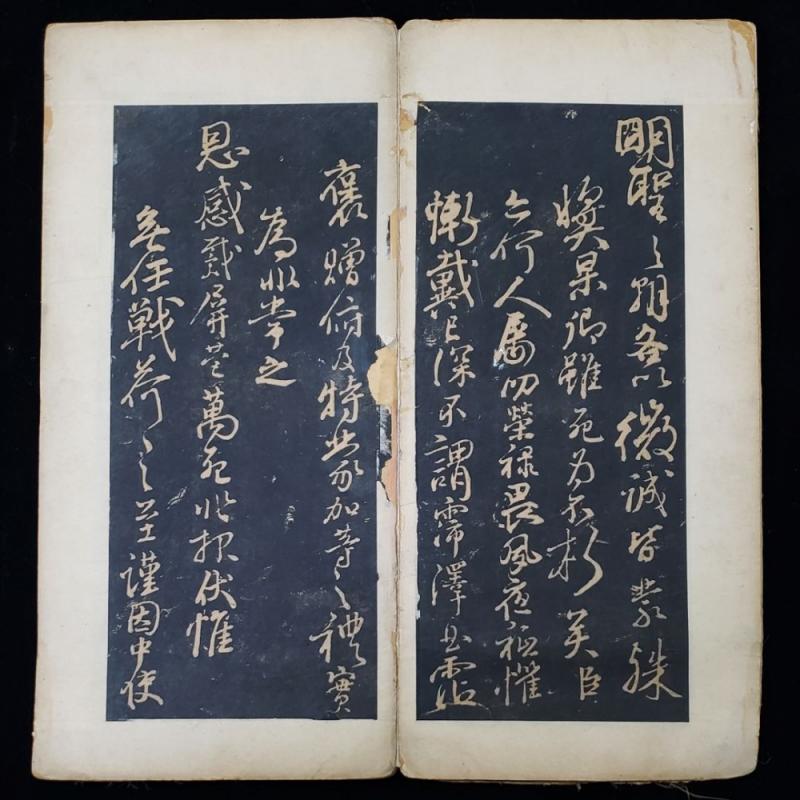 明聖之朝各以微誠皆蒙殊
獎杲卿雖死為不朽矣臣
亦何人屢叨榮祿畏夙夜祗懼
慚戴已深不謂霈澤曲霑
褒贈俯及特蒙加等之禮實
為非常之
恩感戴屏營萬死非報伏惟
無任戰荷之至謹因中使